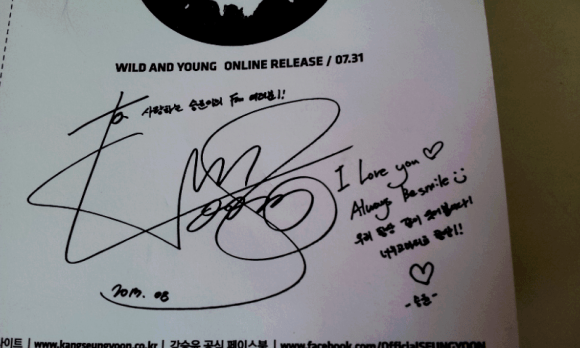 WILD AND YOUNG ONLINE RELEASE / 07.31
To 사랑하는 승윤이의 Fan 여러분!
I Love you ♡
Always Be smile
우리
♡
2013. 08
-승윤-
사이트 | www.kangseungyoon.co.kr | 강승윤 공식 페이스북 | www.facebook.com/OfficialSEUNGYOON